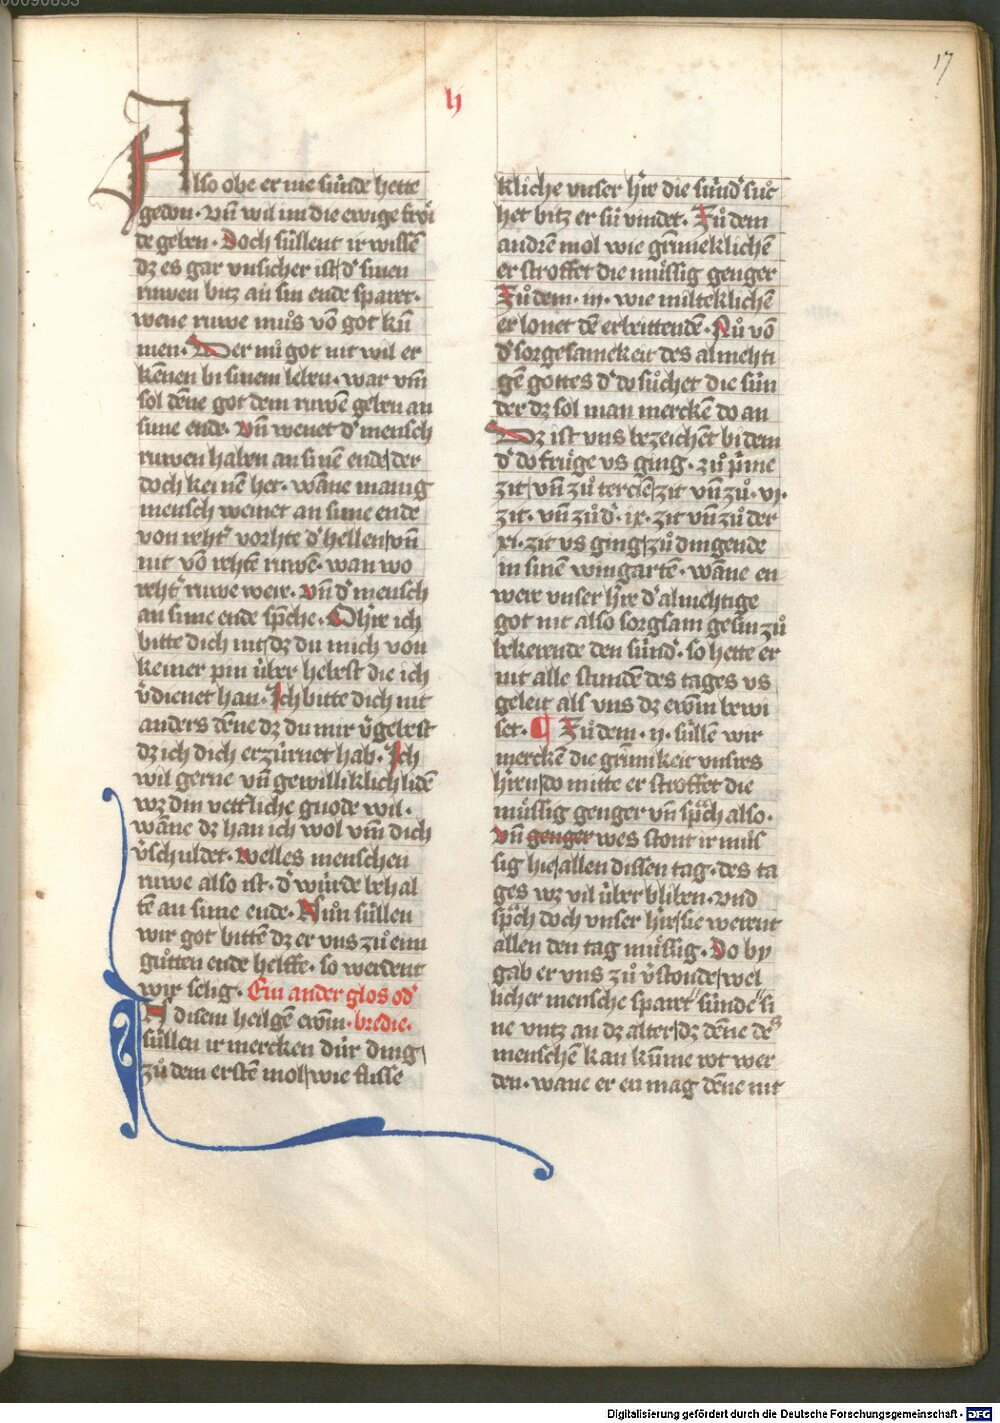 17
h
Also obe er nie sünde hette
gedon· vn̄ wil im die ewige fröi
de geben· Doch süllent ir wissē
dz es gar vnsicher ist d' sinen
ruwen bitz an sin ende sparet·
wene ruwe můs vō got kū
men· Der nů got nit wil er
kēnen bi sinem lebn· war vm̄
sol dēne got dem ruwē gebn an
sime ende· vn̄ wenet d' mensch
ruwen haben an sinē ende der
doch keinen het· wāne manig
mensch weinet an sime ende
von reht' vorhte d' hellen vn̄
nit vō rehtē ruwē· wan wo
reht' ruwe wer· vn̄ d' mensch
an sime ende sp̄che· O h're ich
bitte dich nit dz du mich von
keiner pin über hebest die ich
v'dienet han· Ich bitte dich nit
anders dēne dz du mir v'gebest
dz ich dich erzürnet hab· Ich
wil gerne vn̄ gewilliklich lidē
wz din vett'liche gnode wil·
wāne dz han ich wol vm̄ dich
v'schuldet· welles menschen
ruwe also ist· d' würde behal
tē an sime ende· Nůn süllen
wir got bittē dz er vns zů eim
gůtten ende helffe· so werdent
wir selig· Ein ander glos od'
As disem heilgē ewm̄· bredie·
süllen ir mercken drīr ding
zů dem erstē mol wie flisse
kliche vnser h're die sünd' sůc
het bitz er sü vindet· Zů dem
andrē mol wie grīmeklichē
er stroffet die müssig genger
Zů dem· iii· wie milteklichē
er lonet dē erbeittendē· Nů vō
d' sorgesamekeit des almehti
gē gottes d' do sůchet die sün
der dz sol man merckē do an
Dz ist vns bezeichēt bi dem
d' do frůge vs ging· zů p'me
zit vn̄ zů tercien zit vn̄ zů· vi·
zit· vn̄ zů d'· ix· zit vn̄ zů der
xi· zit vs ging zů dingende
in sinen wingartē· wāne en
were vnser h're d' almehtige
got nit also sorgsam gesin zů
bekerende den sünd'· so hette er
nit alle stunden des tages vs
geleit als vns dz ewm̄ bewi
set· ¶ Zů dem· ii· süllē wir
merckē die grimikeit vnsers
h'ren do mitte er stroffet die
müssig genger vn̄ sp̄ch also·
vn̄ genger wes stont ir müs
sig hie allen dissen tag· des ta
ges wz vil über bliben· vnd
sp̄ch doch vnser h're sie werent
allen den tag müssig· Do by
gab er vns zů v'stonde wel
licher mensche sparet sünde si
ne vntz an dz alter dz dēne de
menschē kan kume rot wer
den· wane er en mag dēne nit
Digitalisierung gefördert durch die Deutsche Forschungsgemeinschaft - DFG